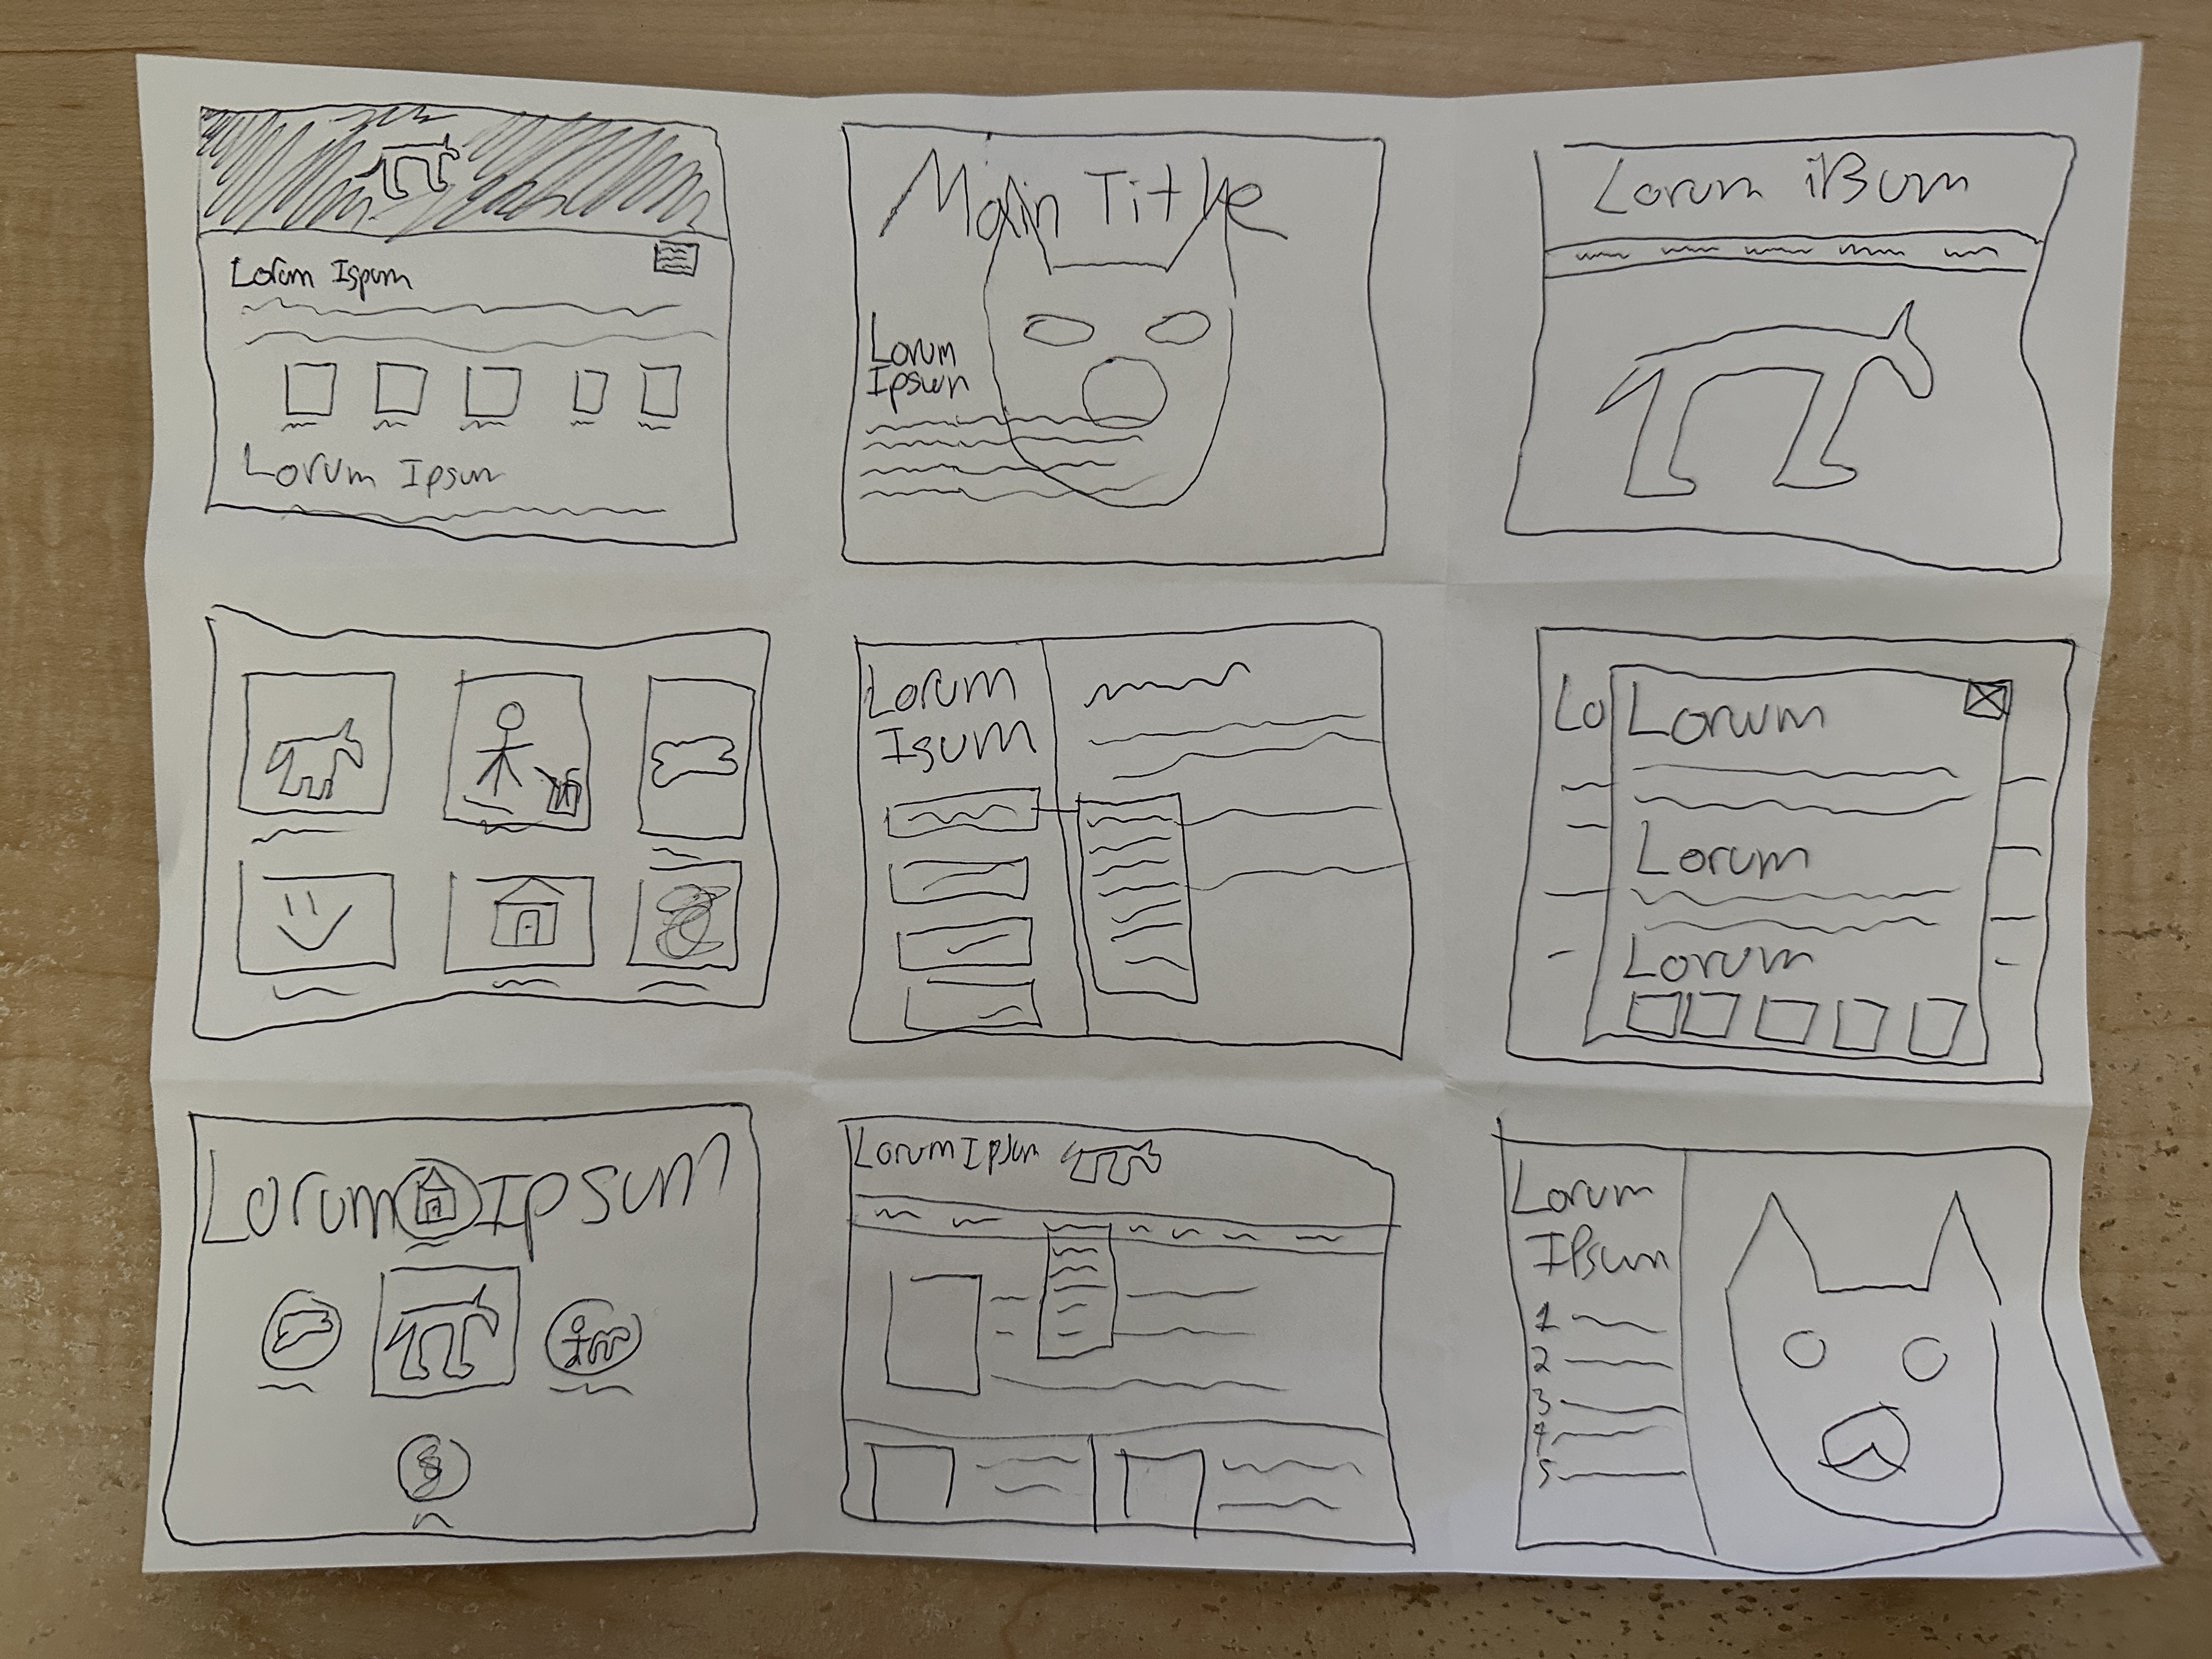 Lorum Ispum
Lorum Ipsum
Main Title
Lorum
Ipsum
Lorum iBum
Lorum
Isum
Lo
Lorum
Lorum
Lorum
Lorum Ipsum
Lorum Ipsum
Lorum
Ipsum
1
2
3
4
5